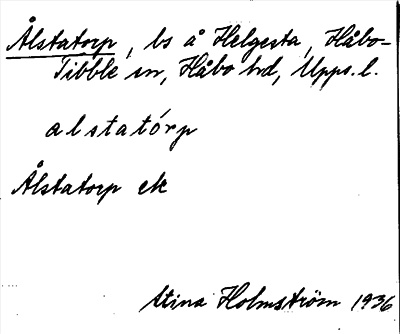 Ålstatorp, ls å Helgesta, Håbo-
Tibble sn, Håbo hd, Upps. l.
alstatórp
Ålstatorp ek
Stina Holmström 1936